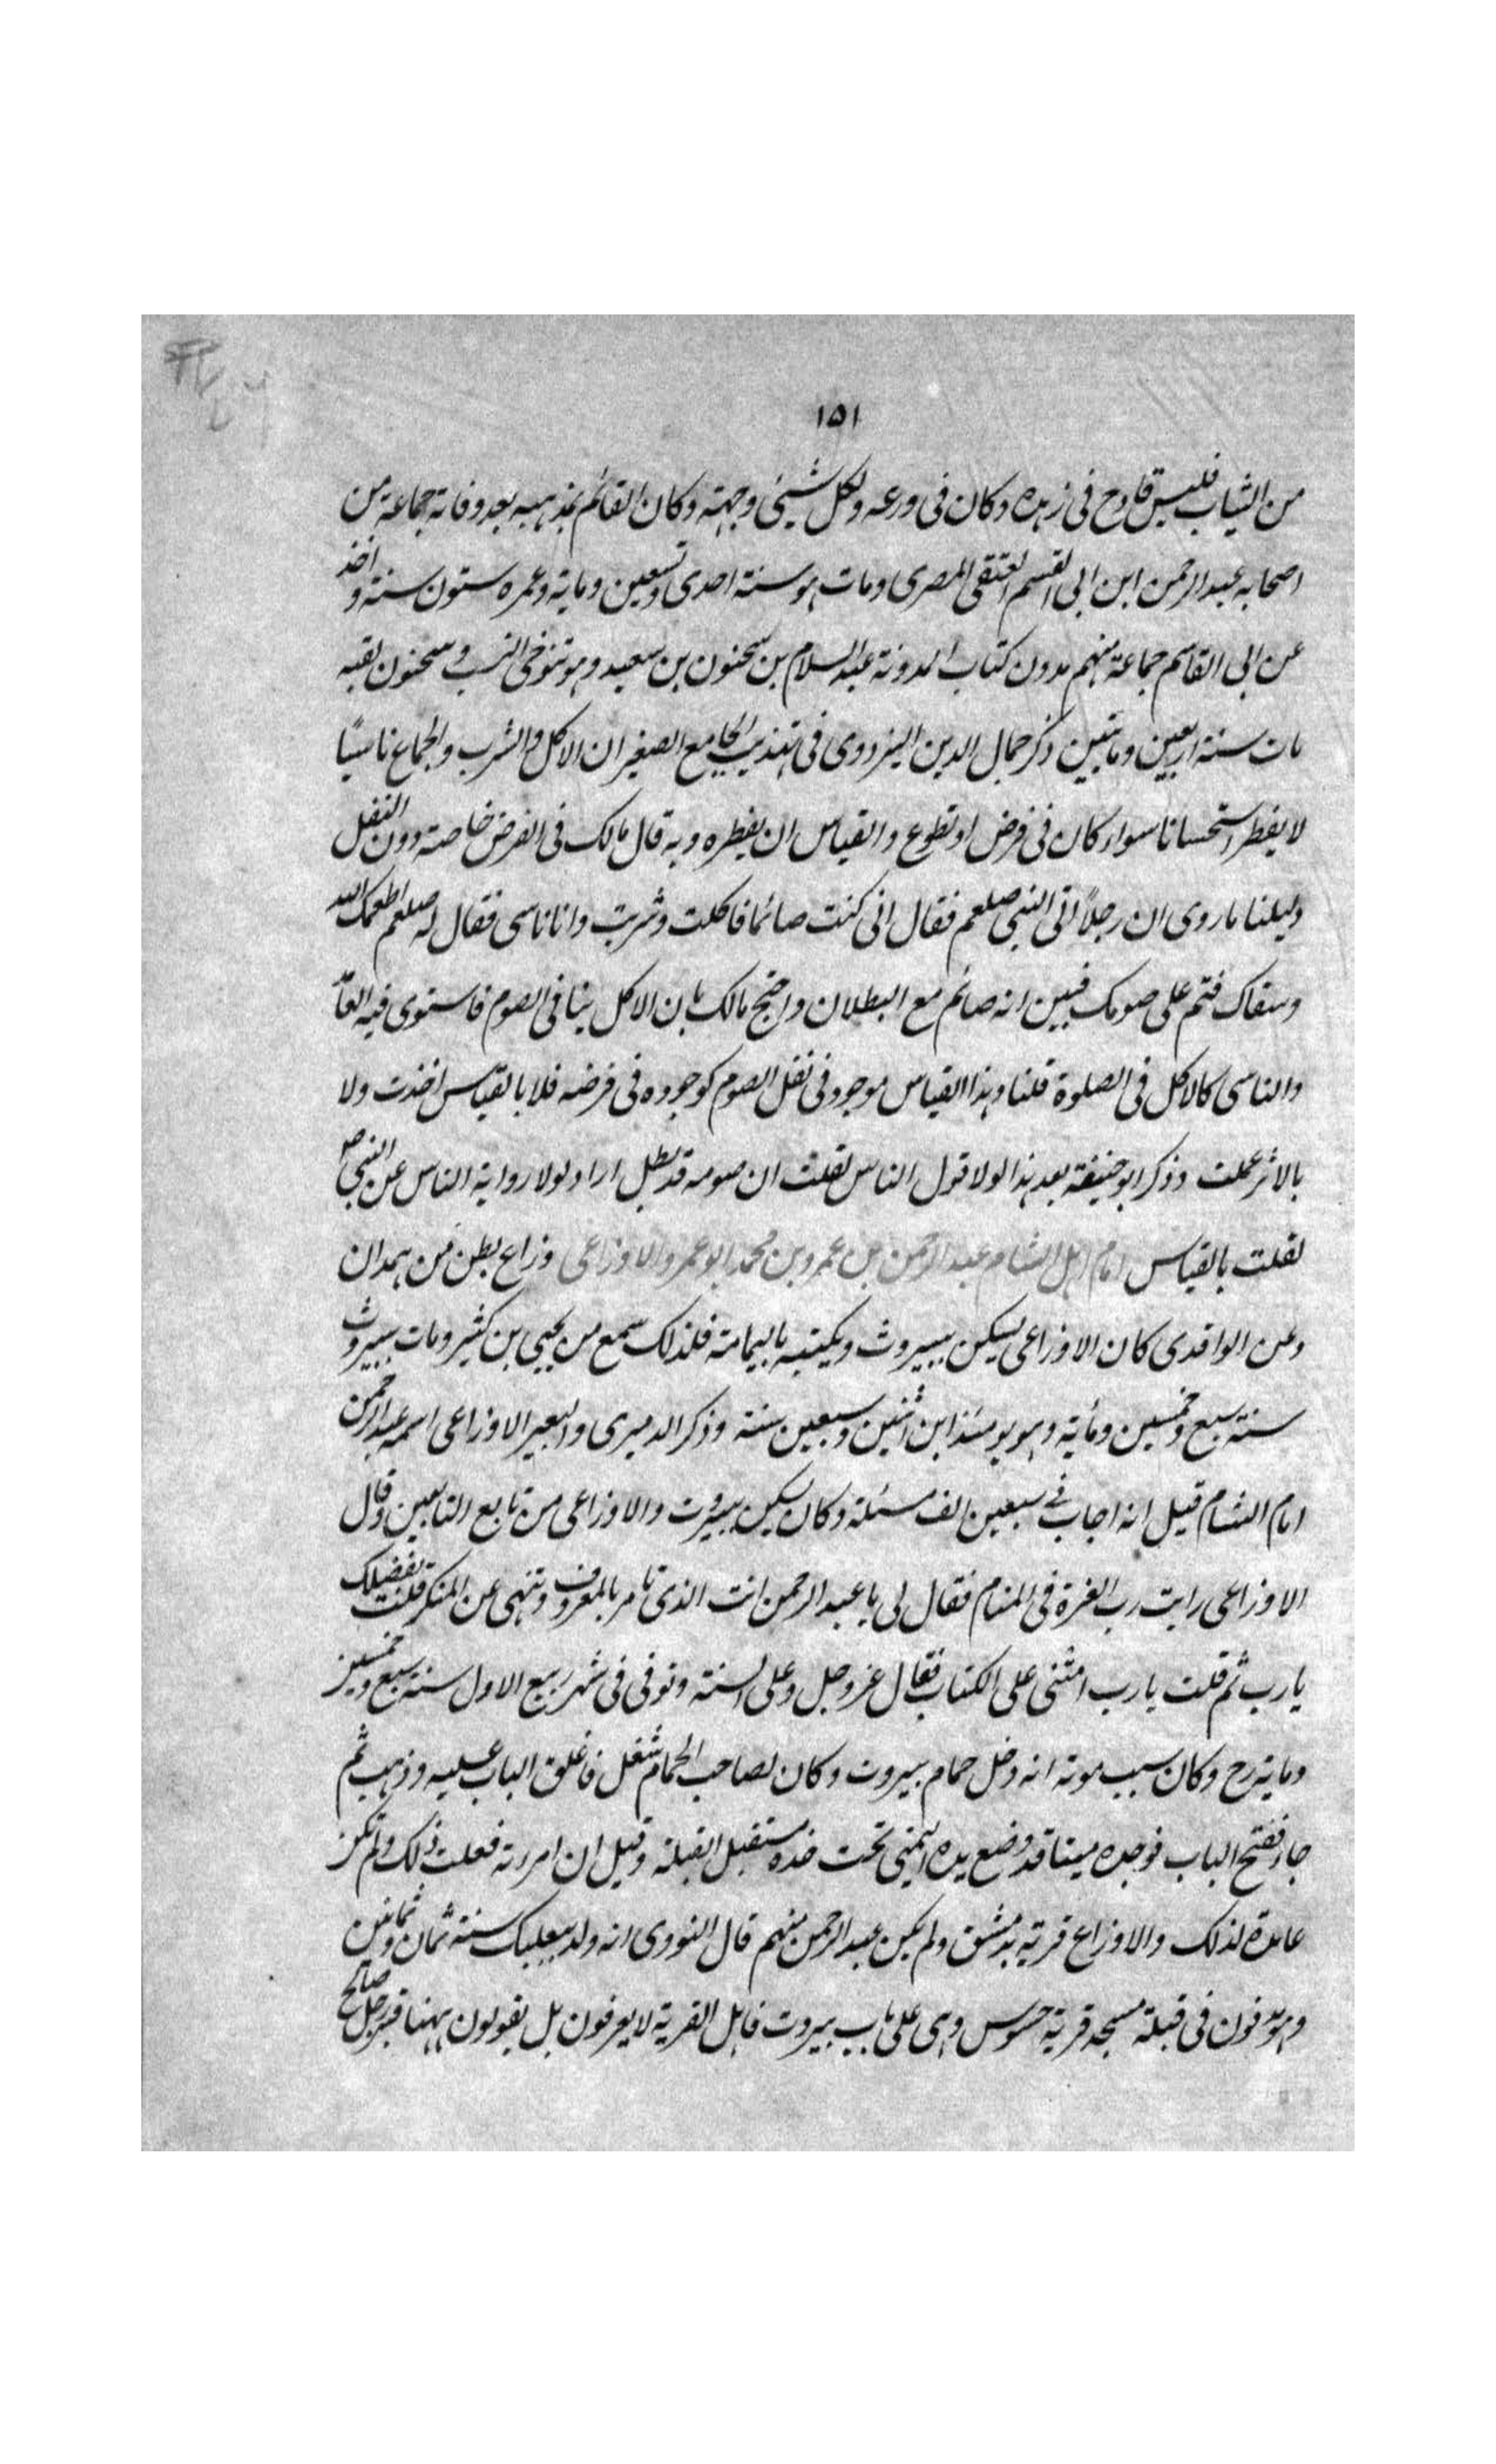 ١٥١
من الثياب فليس قادح فى زهده وكان فى ورعه ولكل شيئ وجهته وكان القائم بمذهبه بعد وفاته جماعة من
اصحابه عبد الرحمن ابن ابى القسم العتقى المصرى ومات هو سنة احدى وتسعين ومايه وعمره ستون سنة واخذ
عن ابى القاسم جماعة منهم مدون كتاب المدونة عبد السلام بن سحنون بن سعيد وهو تنوخى النسب وسحنون لقبه
مات سنة اربعين ومايتين ذكر جمال الدين اليزدوى فى تهذيب الجامع الصغير ان الاكل والشرب والجماع ناسيًا
لا يفطر استحسانا سواء كان فى فرض او تطوع والقياس ان يفطره وبه قال مالك فى الفرض خاصة دون النفل
دليلنا ما روى ان رجلاً اتى النبى صلعم فقال انى كنت صائما فاكلت وشربت وانا ناسى فقال له صلعم اطعمك الله
وسقاك فتم على صومك فبين انه صائم مع البطلان واحتج مالك بان الاكل ينافى الصوم فاستوى فيه العامد
والناسى كالاكل فى الصلوة قلنا وهذا القياس موجود فى نفل الصوم كوجوده فى فرضه فلا بالقياس اخذت ولا
بالاثر عملت وذكر ابو حنيفة بعد هذا لولا قول الناس لقلت ان صومه قد بطل اراد لولا رواية الناس عن النبى ص
لقلت بالقياس امام اهل الشام عبد الرحمن بن عمرو بن محمد ابو عمرو الاوزاعى وزاع بطن من همدان
وعن الواقدى كان الاوزاعى يسكن ببيروت ويكتبه باليمامة فلذلك سمع من يحيى بن كثير ومات ببيروت
سنة سبع وخمسين ومأية وهو يومئذ ابن اثنين وسبعين سنة وذكر الدميرى والبعير الاوزاعى اسمه عبد الرحمن
امام الشام قيل انه اجاب فى سبعين الف مسئلة وكان يسكن ببيروت والاوزاعى من تابع التابعين وقال
الاوزاعى رايت رب العزة فى المنام فقال لى يا عبد الرحمن انت الذى تامر بالمعروف وتنهى عن المنكر قلت بفضلك
يا رب ثم قلت يا رب امتنى على الكتاب فقال عز وجل وعلى السنة وتوفى فى شهر ربيع الاول سنة سبع وخمسين
ومايه رح وكان سبب موته انه دخل حمام بيروت وكان لصاحب الحمام شغل فاغلق الباب عليه وذهب ثم
جاء ففتح الباب فوجده ميتا قد وضع يده اليمنى تحت خده مستقبل القبلة وقيل ان امرءته فعلت ذلك ولم تكن
عامدة لذلك والاوزاع قرية بدمشق ولم يكن عبد الرحمن منهم قال النووى انه ولد ببعلبك سنة ثمان وثمانين
وهو مدفون فى قبلة مسجد قرية حسوس وهى على باب بيروت فاهل القرية لا يعرفون بل يقولون ههنا قبر رجل صالح